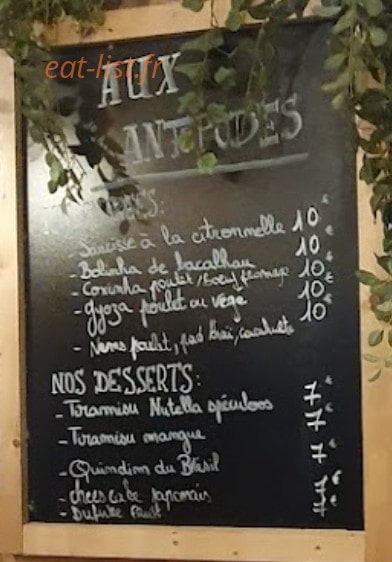 eat-list.fr
AUX
ANTIPODES
- Saucisse à la citronnelle 10€
- Bolinha de bacalhau 10€
- Coxinha poulet/boeuf, fromage 10€
- gyoza poulet ou végé 10€
- Nems poulet, pad thaï, cacahuète 10€
NOS DESSERTS:
- Tiramisu Nutella spéculoos 7€
- Tiramisu mangue 7€
- Quindim du Brésil 7€
- cheescake japonais 7€
7€